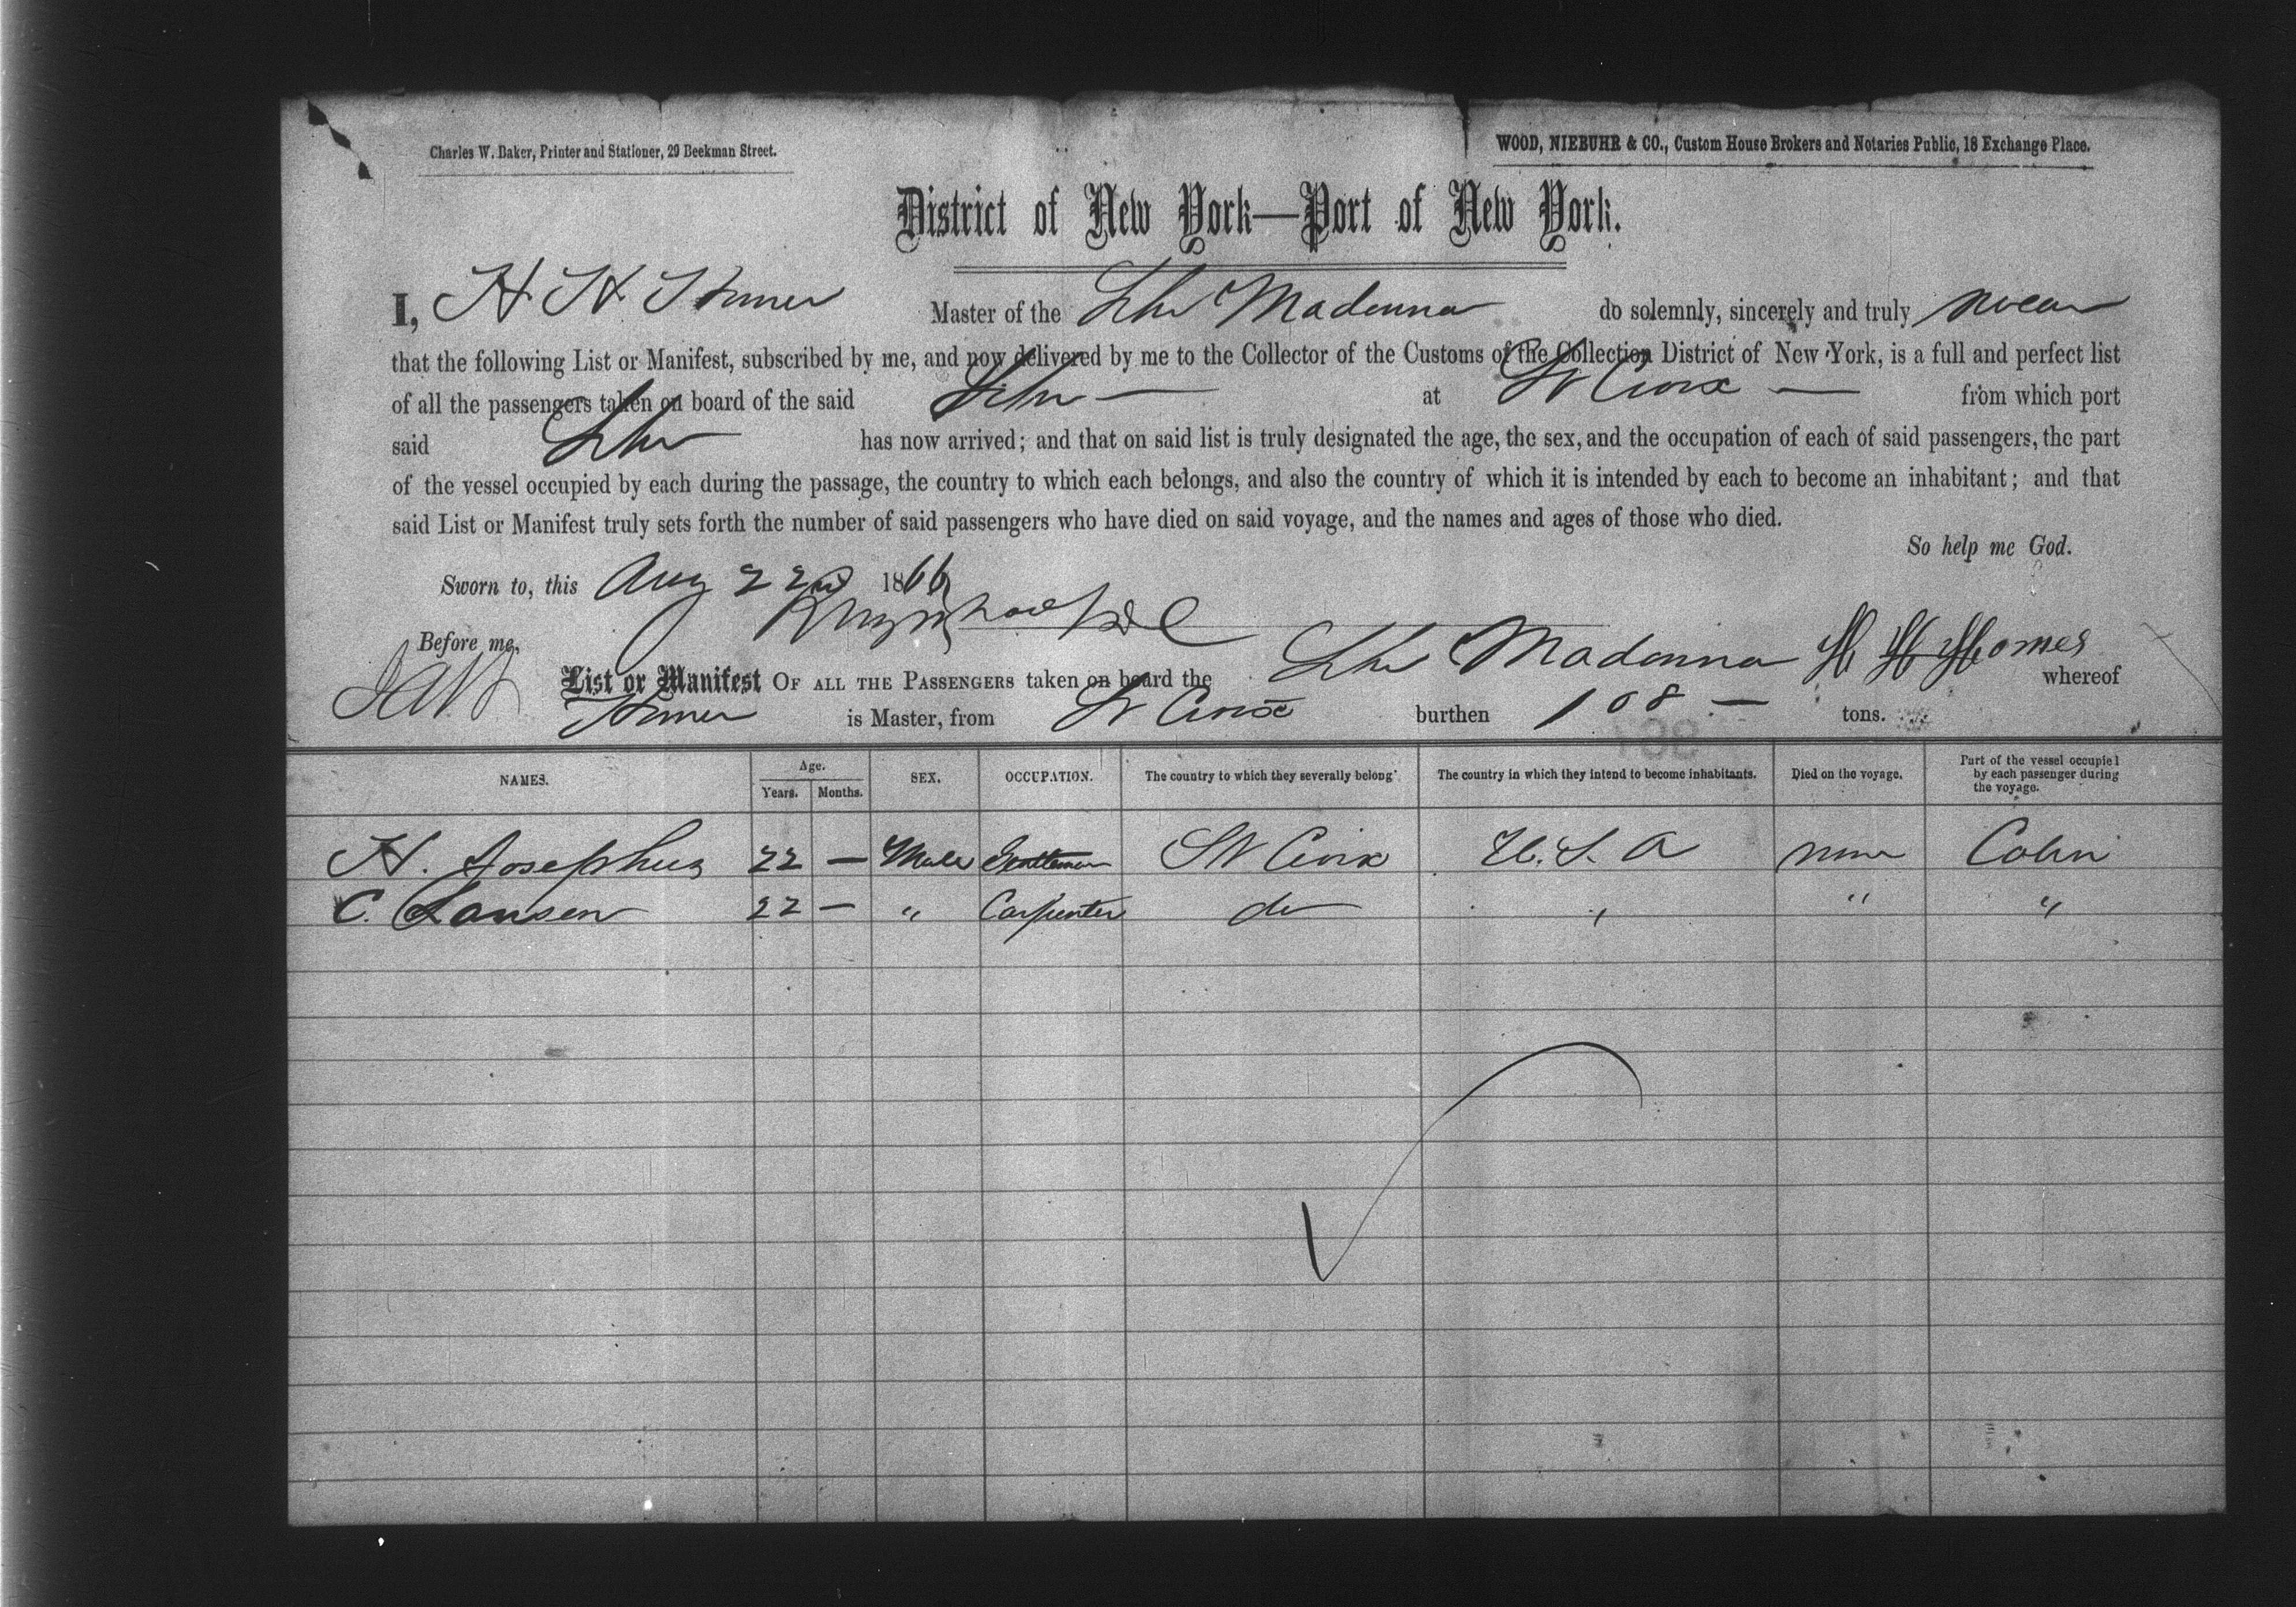 Charles W. Baker, Printer and Stationer, 29 Beekman Street.
WOOD, NIEBUHR & CO., Custom House Brokers and Notaries Public, 18 Exchange Place.
District of New York—Port of New York.
I, H H Master of the Schr Madonna do solemnly, sincerely and truly swear
that the following List or Manifest, subscribed by me, and now delivered by me to the Collector of the Customs of the Collection District of New York, is a full and perfect list
of all the passengers taken on board of the said Schr — at St Croix — from which port
said Schr has now arrived; and that on said list is truly designated the age, the sex, and the occupation of each of said passengers, the part
of the vessel occupied by each during the passage, the country to which each belongs, and also the country of which it is intended by each to become an inhabitant; and that
said List or Manifest truly sets forth the number of said passengers who have died on said voyage, and the names and ages of those who died.
So help me God.
Sworn to, this Aug 22nd 1866
Before me,
List or Manifest OF ALL THE PASSENGERS taken on board the Schr Madonna H H whereof
is Master, from St Croix burthen 108 — tons.
NAMES. Age. Years. Months. SEX. OCCUPATION. The country to which they severally belong The country in which they intend to become inhabitants. Died on the voyage. Part of the vessel occupied by each passenger during the voyage.
H. Josephus 22 — Male Gentleman St Croix U. S. A none Cabin
C. Lansen 22 — " Carpenter do " " "